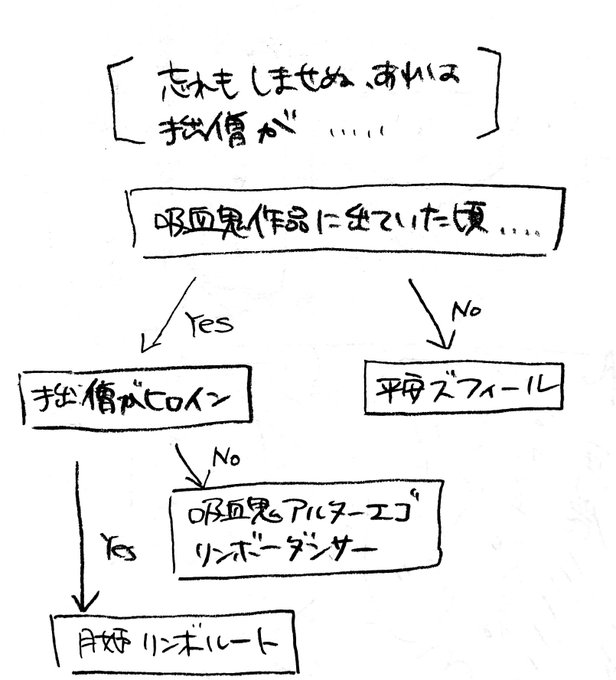 忘れもしませぬ、あれは
拙僧が .....
吸血鬼作品に出ていた頃....
Yes
No
拙僧がヒロイン
平安ズフィール
No
吸血鬼アルターエゴ
リンボーダンサー
Yes
月姫リンボルート